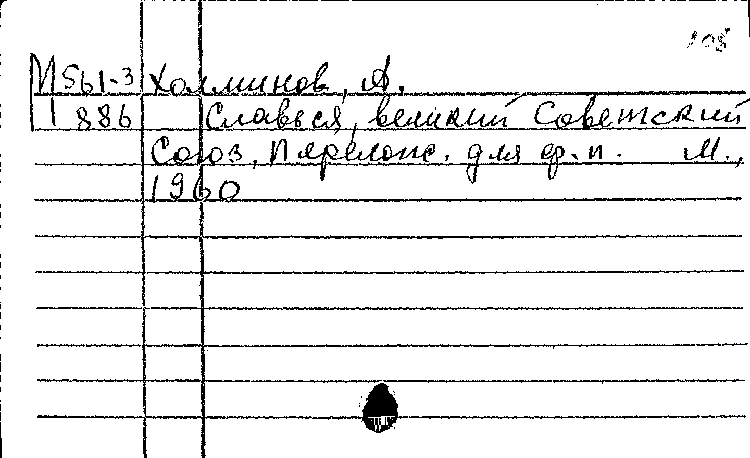 108
М 561-3 Холминов, А.
886 Славься, великий Советский
Союз, Перелож. для ф.п. М.,
1960